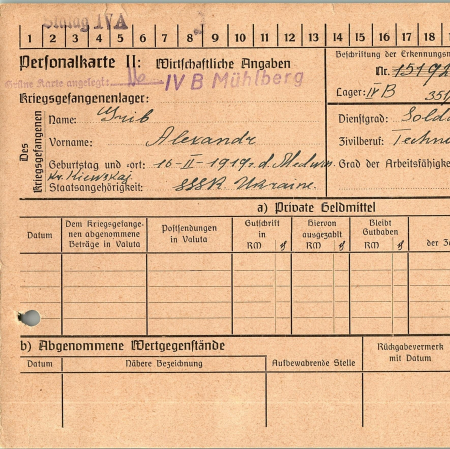 Stalag IV A
1 2 3 4 5 6 7 8 9 10 11 12 13 14 15 16 17 18 1
Personalkarte II: Wirtschaftliche Angaben
Beschriftung der Erkennungsm
Grüne Karte angelegt:
IV B Mühlberg
Nr. 15192
Kriegsgefangenenlager:
Lager: IV B 351
Des Kriegsgefangenen
Name: Grib
Dienstgrad: Solda
Vorname: Alexandr
Zivilberuf: Techni
Geburtstag und -ort: 16-II-1919. d.
Grad der Arbeitsfähigke
Kr. Kiewskaj
Staatsangehörigkeit: SSSR Ukraine.
a) Private Geldmittel
Datum
Dem Kriegsgefange-
nen abgenommene
Beträge in Valuta
Postsendungen
in Valuta
Gutschrift
in
RM ₰
Hiervon
ausgezahlt
RM ₰
Bleibt
Guthaben
RM ₰
der Za
b) Abgenommene Wertgegenstände
Datum
Nähere Bezeichnung
Aufbewahrende Stelle
Rückgabevermerk
mit Datum